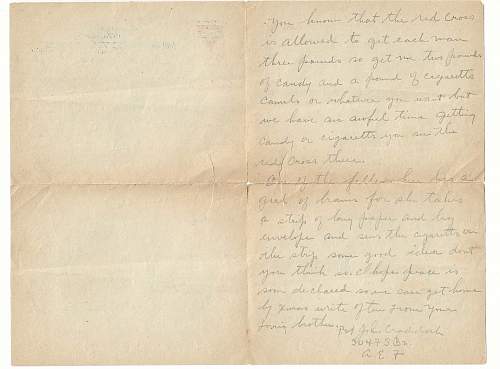 You know that the red Cross
is allowed to get each man
three pounds so get me two pounds
of candy and a pound of cigaretts
Camels or whatever you want but
we have an awful time getting
candy or cigaretts you see the
red Cross there.
One of the fellows here has a
girl of brains for she takes
a strip of long paper and big
envelope and sews the cigaretts on
the strip some good idea dont
you think so. I hope peace is
soon declared so we can get home
by xmas write often From Your
loving brother. Pvt John Craddock
A E F